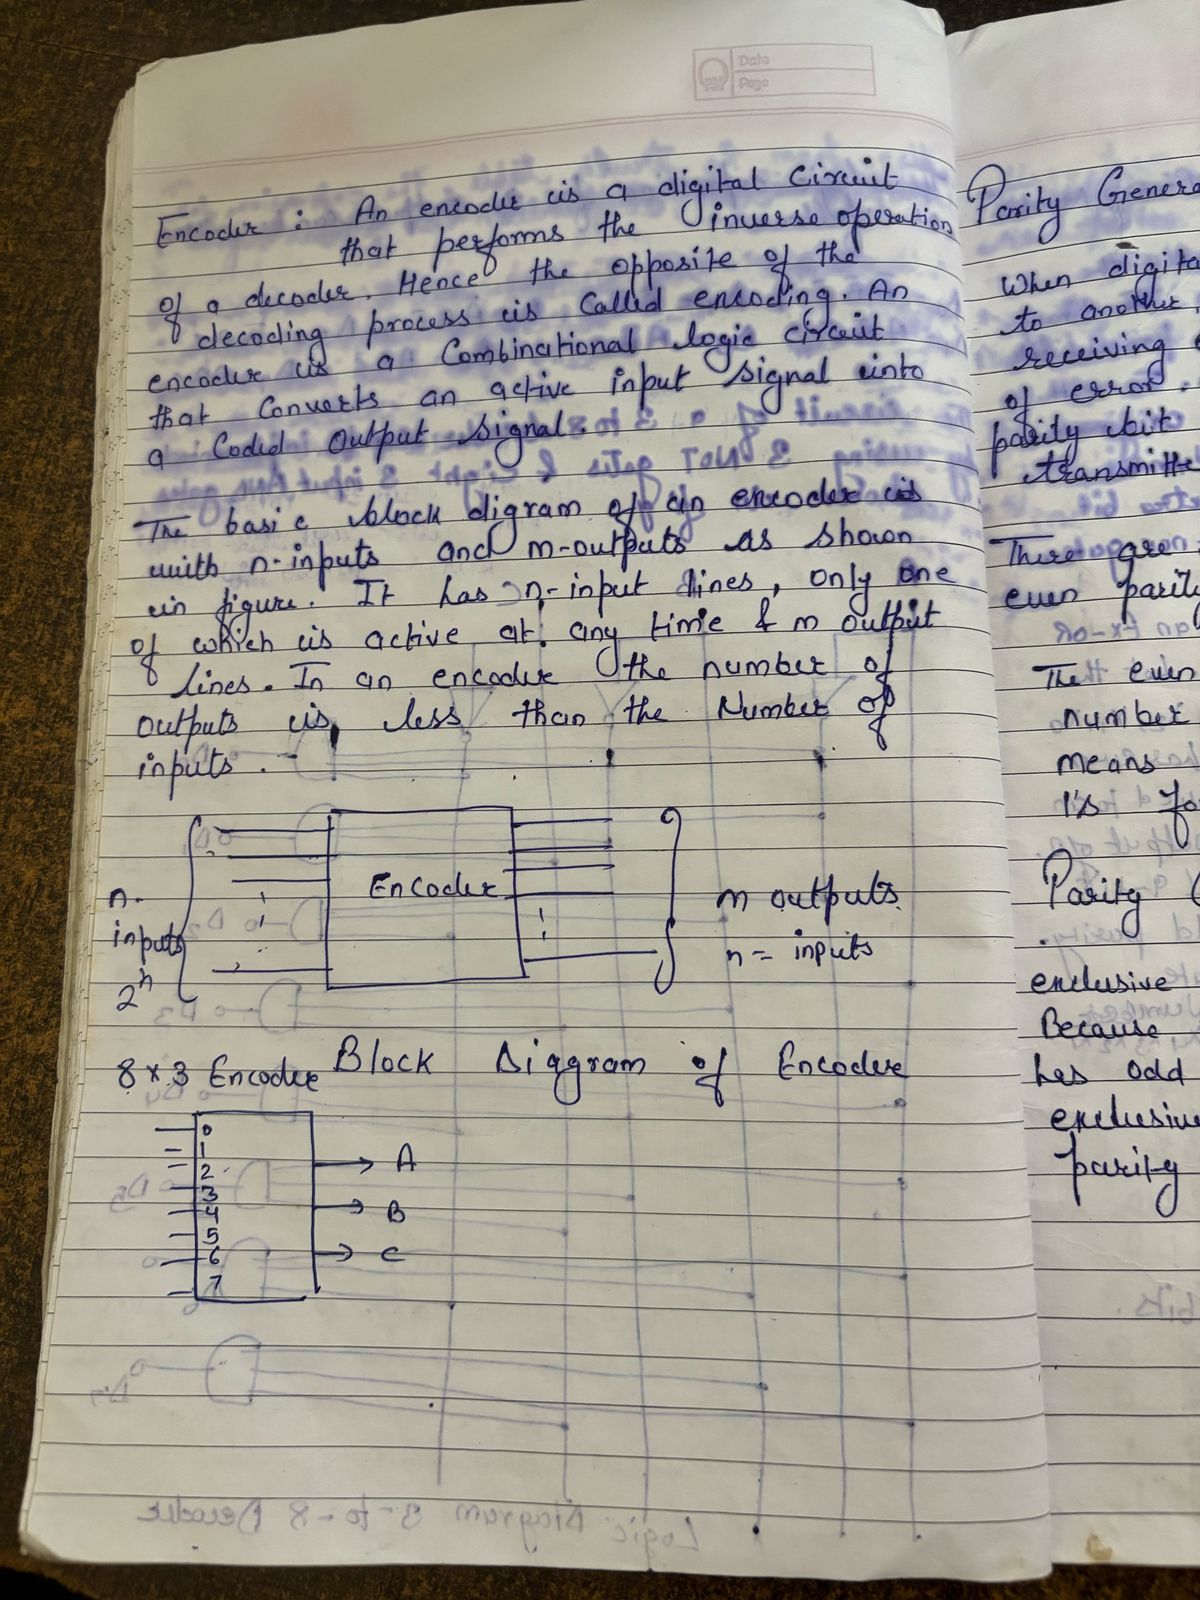 Date
Page
Encoder : An encoder is a digital Circuit
that performs the inverse operation
of a decoder. Hence the opposite of the
decoding process is Called encoding. An
encoder is a Combinational logic circuit
that Converts an active input signal into
a Coded Output Signal.
The basic block digram of an encoder is
with n-inputs and m-outputs as shown
in figure. It has n-input lines, only one
of which is active at any time & m output
lines. In an encoder the number of
outputs is less than the Number of
inputs.
n-
inputs
2^n
Encoder
m outputs
n = inputs
Block Diagram of Encoder
8 x 3 Encoder
0
1
2
3
4
5
6
7
A
B
C
Parity Genera
When digita
to another,
receiving
of error.
parity bit
transmitte
There are
even parity
The even
number
means
1's fo
Parity
exclusive
Because
has odd
exclusive
parity